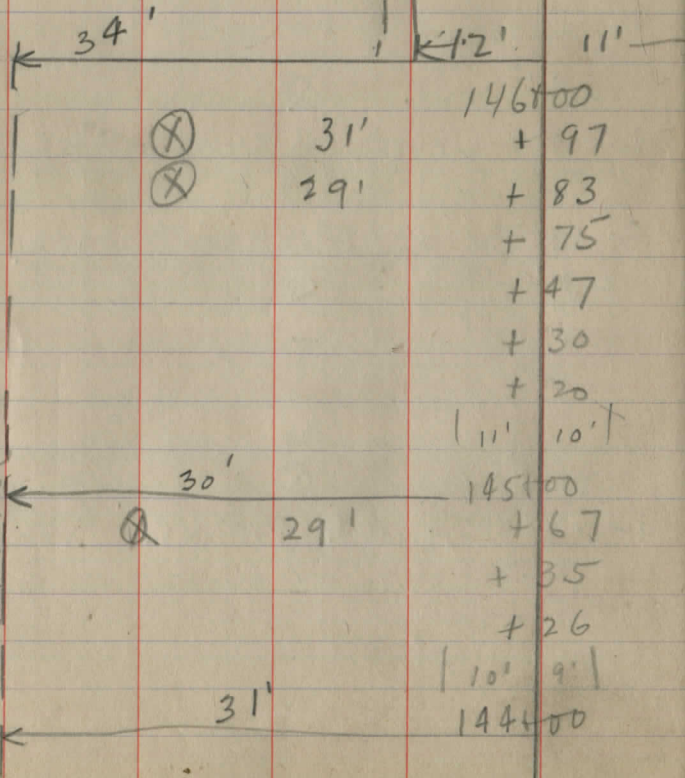 34' 12' 11'
146+00
31' + 97
29' + 83
+ 75
+ 47
+ 30
+ 20
11' 10'
30' 145+00
29' + 67
+ 35
+ 26
10' 9'
31' 144+00